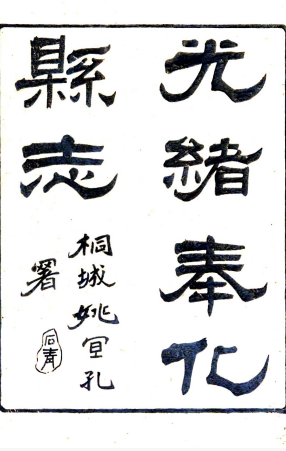 光緒奉化
縣志
桐城姚宣孔
署
石青